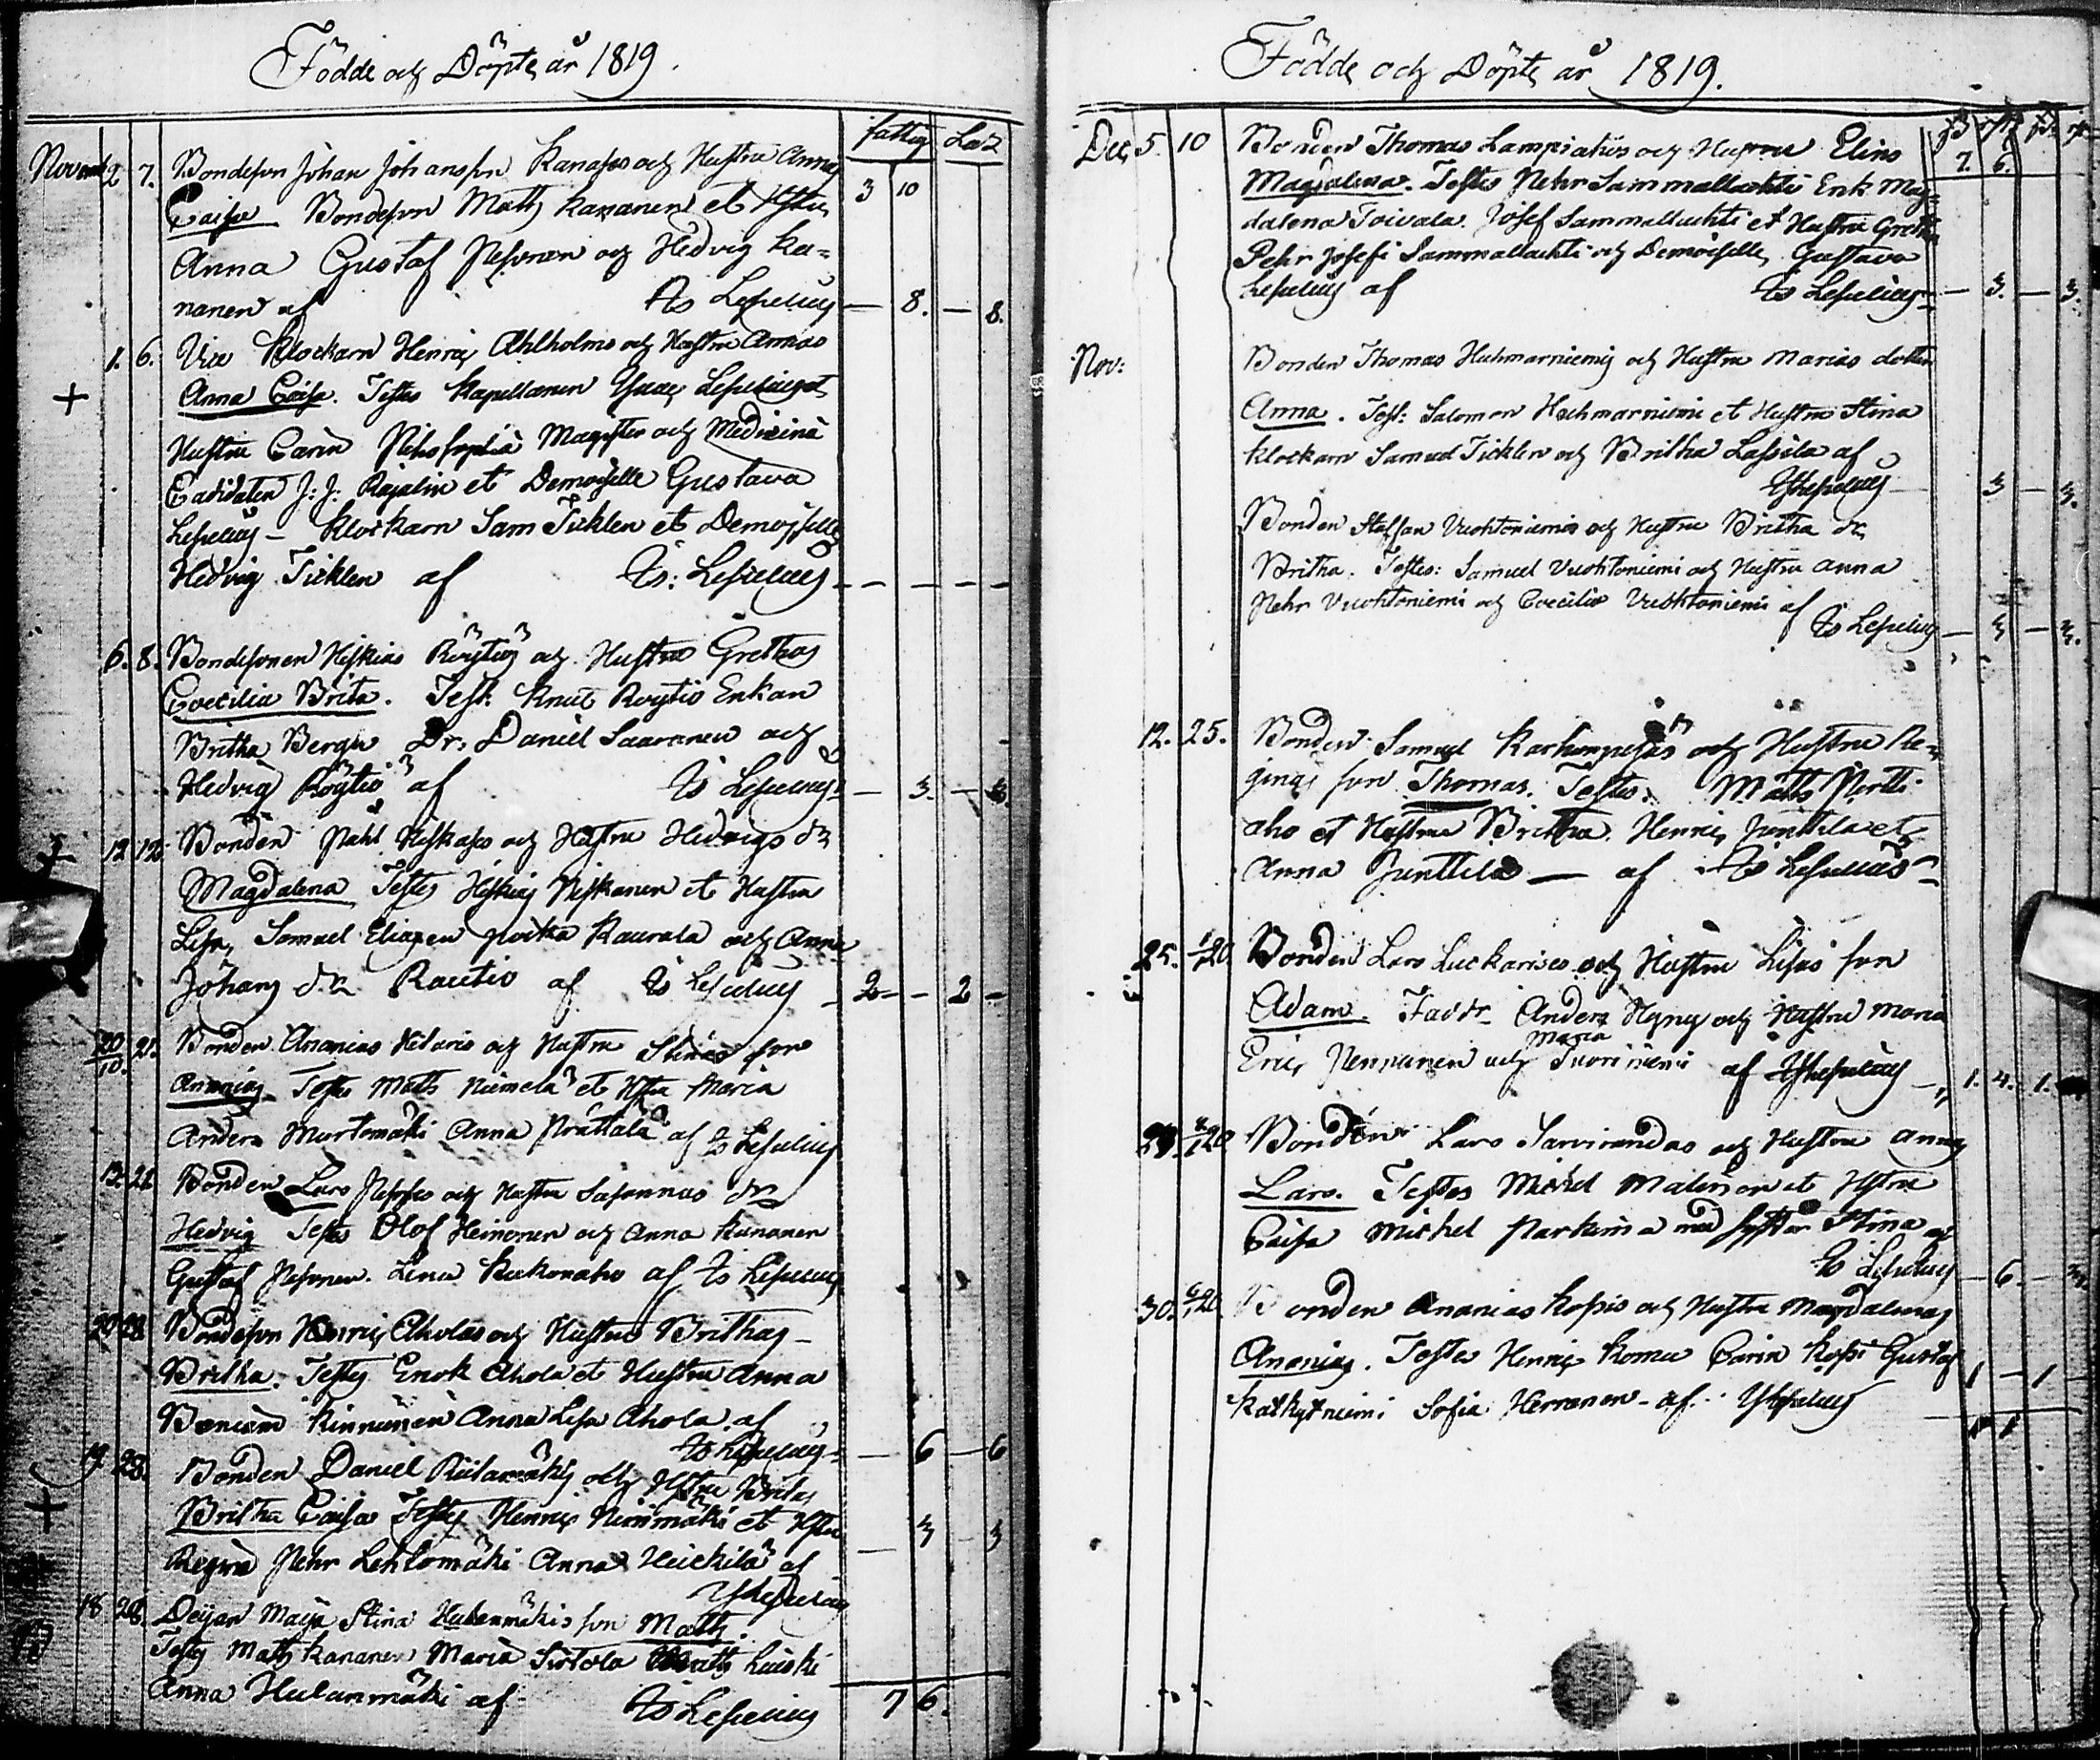 Födde och Döpte år 1819.
fattig Laz
Novemb 2 7. Bondeson Johan Johansson Kananens och Hustru Annas 3 10
Caisa Bondeson Matts Kananen et Hstru
Anna Gustaf Pesonen og Hedvig Ka=
nanen af Is Lepelius — 8. — 8.
1. 6. Vice Klockarn Henric Ahlholms och Hustru Annas
Anna Caisa. Testes Kapellanen Isaac Lepelius et
Hustru Carin Philosophiä Magister och Medicinä
Cadidaten J: J: Rajalin et Demoiselle Gustava
Lepelius — Klockarn Sam Ticklen et Demoiselle
Hedvig Ticklen af Is: Lepelius — — — —
6. 8. Bondesonen Hiskias Röytiös och Hustru Grethas
Coecilia Brita. Test: Knut Röytiö Enkan
Britha Bergh Dr. Daniel Saaranen och
Hedvig Röytiö af Is Lepelius — 3. — 3
12 12 Bonden Påhl Hiskases och Hustru Hedvigs dr
Magdalena Testes Hiskias Niskanen et Hustru
Lisa, Samuel Eliasen poika Kaurala och Anna
Johans dr Rautio af Is Lepelius — 2 — 2 —
20/10. 21. Bonden Ananias Hilaris og Hustru Stinas son
Ananias Testes Matts Niemelä et Hstru Maria
Anders Murtomäki Anna Prättälä af Is Lepelius
13. 21. Bonden Lars Pesoses och Hustru Susannas dr
Hedvig Testes Olof Heinonen och Anna Kananen
Gustaf Pesonen. Lena Kukonaho af Is Lepelius
20 28 Bondeson Henric Aholas och Hustru Brithas
Britha. Testes Enok Ahola et Hustru Anna
Kinnunen Anna Lisa Ahola af
Is Lepelius — 6 — 6
19. 28. Bonden Daniel och Hstru Britas
Britha Caisa Testes Henric Niinimäki et Hstru — 3 — 3
Regina Pehr Lehtomäki Anna Heickilä af
Is Lepelius
18 28. Deijan Maija Stina Hulanmäkis son Matts.
Testes Matts Kananen Maria Sirtola Matts
Anna Hulanmäki af Is Lepelius 7 6.
Födde och Döpte år 1819.
Dec, 5. 10 Bonden Thomas Lampiahos och Hustru Elins 7. 6.
Magdalena. Testes Pehr Sammallachti Enk Mag=
dalena Toivala. Josef Sammallachti et Hustru Gretha
Pehr Josefs Sammallachti och Demoiselle, Gustava
Lepelius af Is Lepelius — 3. — 3.
Nov: Bonden Thomas Huhmarniemis och Hustru Marias dotter
Anna. Test: Salomon Huhmarniemi et Hustru Stina
Klockarn Samuel Ticklen och Britha Lassila af
Is Lepelius 3 — 3.
Bonden Staffan Vuohtoniemis och Hustru Britha dr
Britha. Testes: Samuel Vuohtoniemi och Hustru Anna
Pehr Vuohtoniemi och Coecilia Vuohtoniemi af
Is Lepelius — 3 — 3.
12. 25. Bonden Samuel Karhunpesäs och Hustru Re=
ginas son Thomas. Testes. Matts Pertti
aho et Hustru Britha. Henric Junttila et
Anna Junttila — af Is Lepelius
25. 1/1 20. Bonden Lars Luckarises och Hustru Lisas son
Adam. Faddr Anders Hyry och Hustru Maria
Maria
Eric, Pennanen och Suoriniemi af Is Lepelius — 1. 4. 1.
1/20 Bonden Lars Sarvirandas och Hustru Annas
Lars. Testes Michel Malinen et Hstru
Caisa Michel Parkina med syster Stina af
Is Lepelius — 6. —
30. 6/1 20. Bonden Ananias Kossis och Hustru Magdalenas
Ananias. Testes Henric Komu Carin Kossi Gustaf
Sofia Herranen — af. Is Lepelius 1 — 1